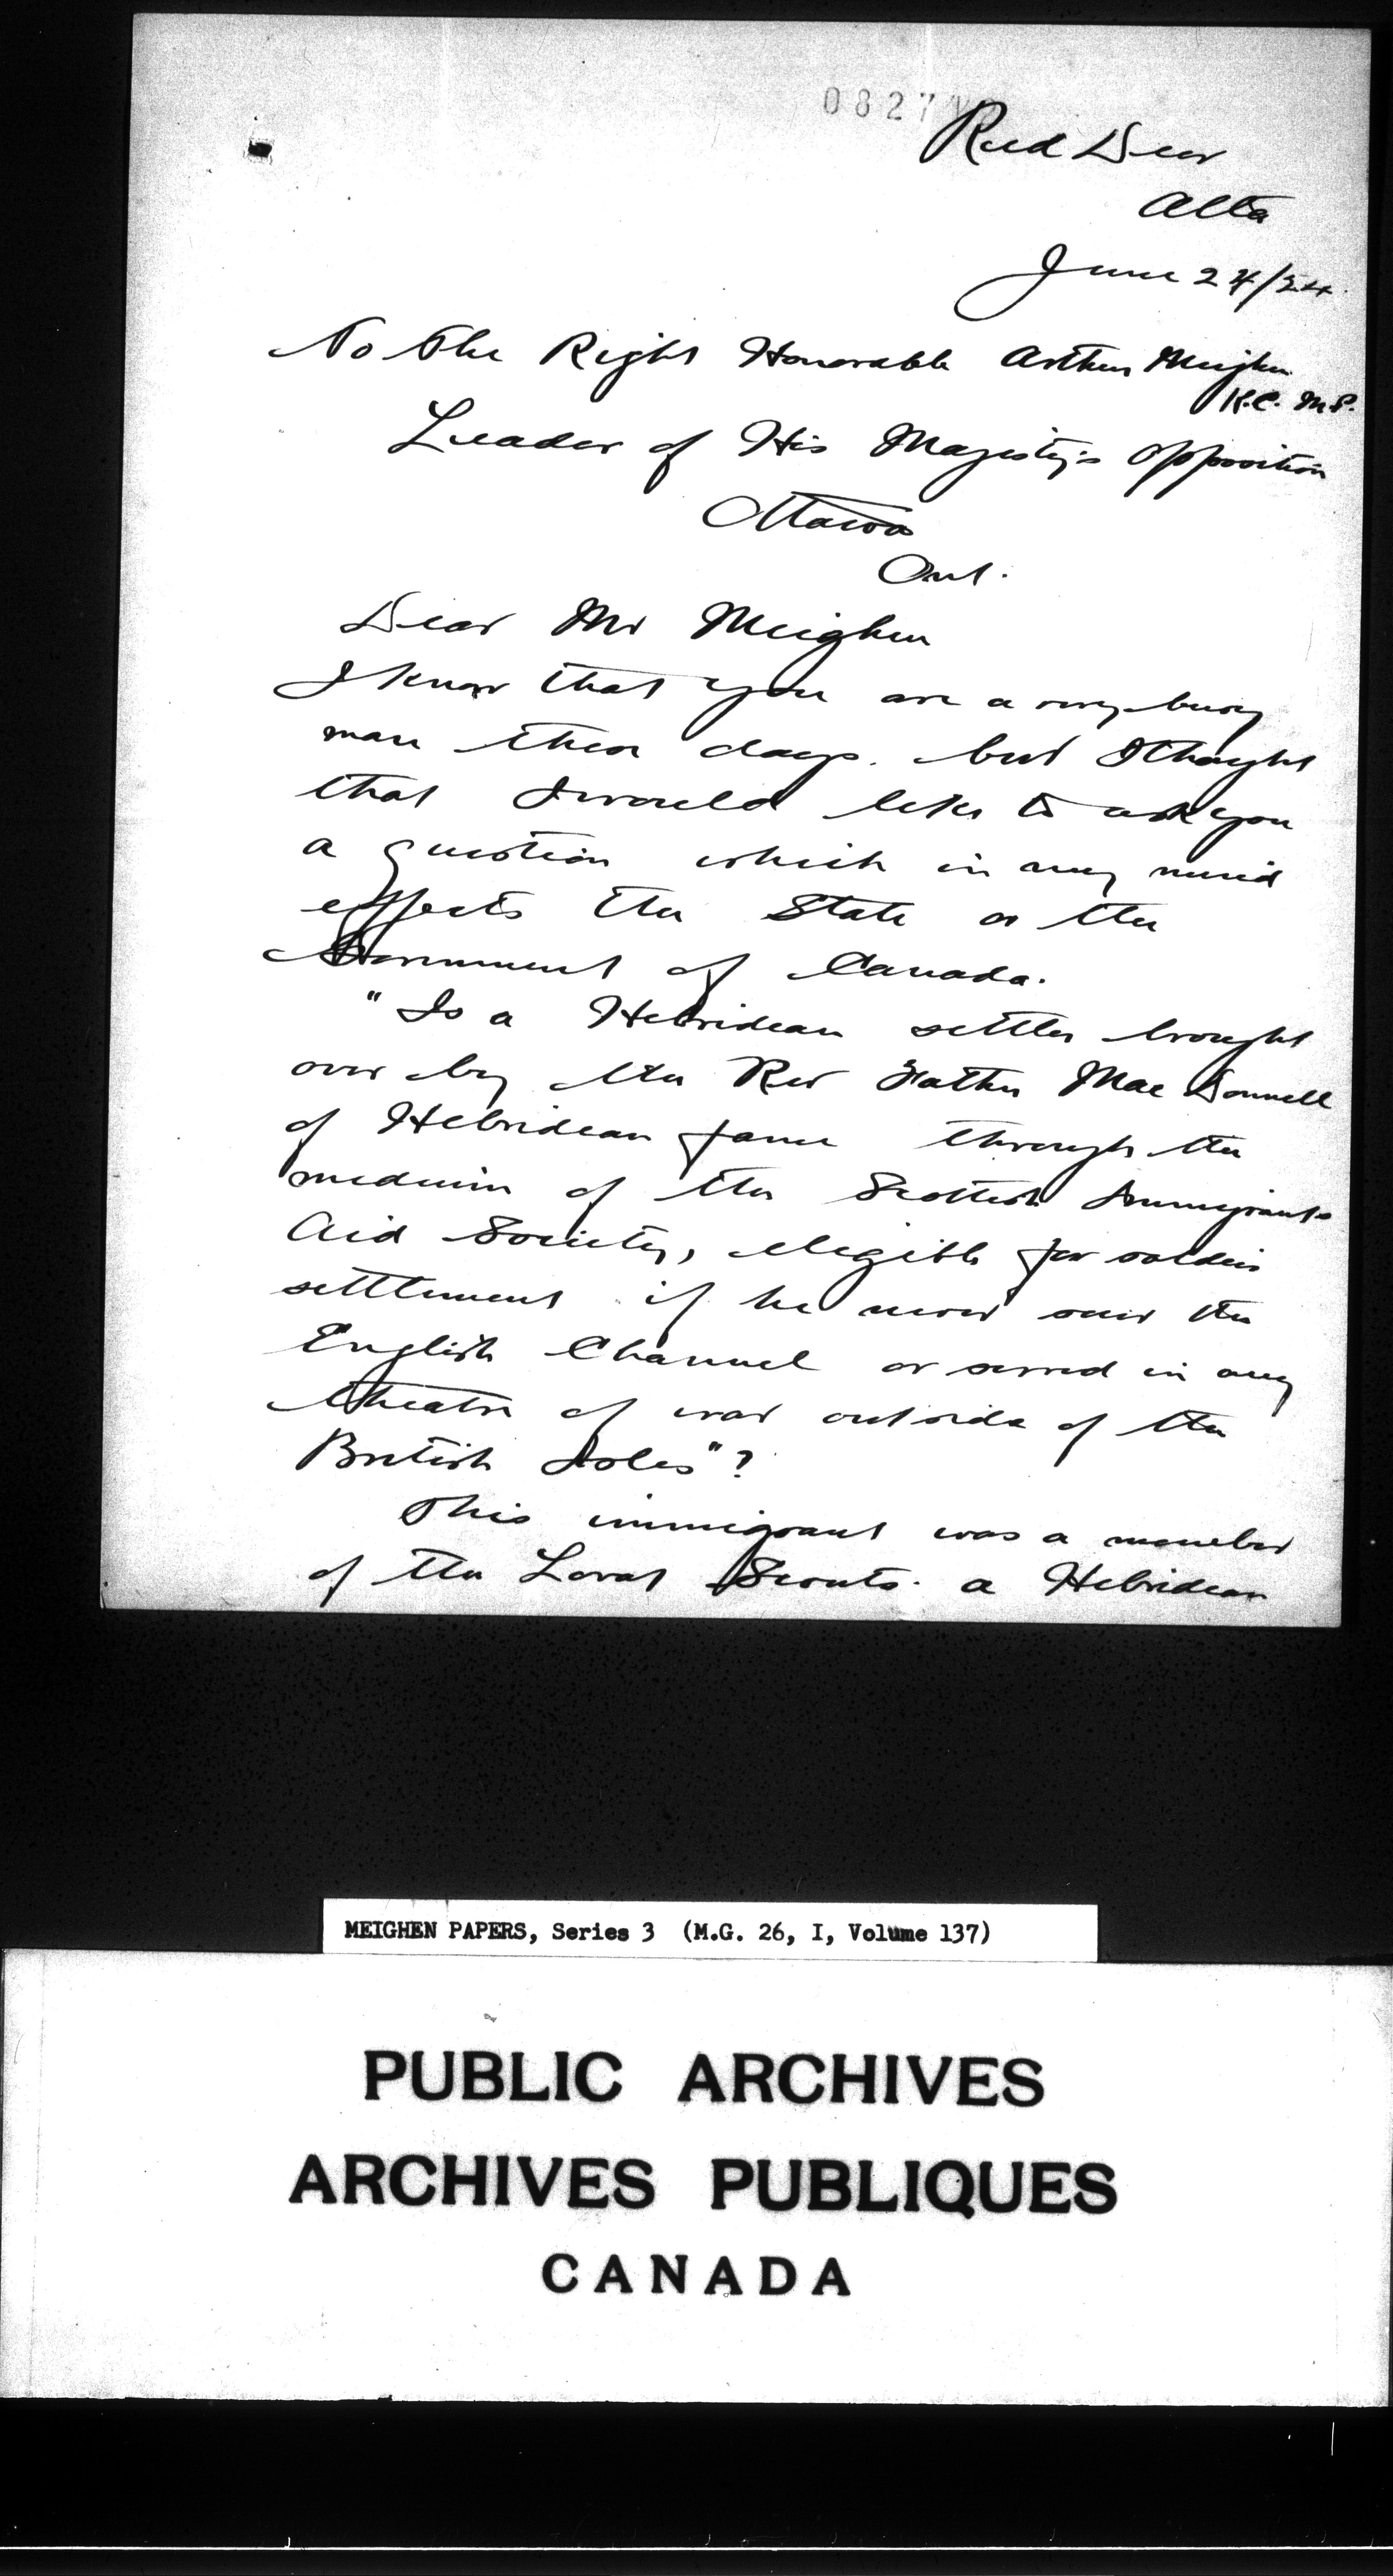 0827
Red Deer
Alta
June 24/24.
To The Right Honorable Arthur Meighen
K.C. M.P.
Leader of His Majesty's Opposition
Ottawa
Ont.
Dear Mr Meighen
I know that you are a very busy
man these days. but I thought
that I would like to ask you
a question which in my mind
effects the State or the
Government of Canada.
"Is a Hebridean settler brought
over by the Rev Father MacDonnell
of Hebridean fame through the
medium of the Scottish Immigrants
Aid Society, eligible for soldiers
settlement if he never saw the
English Channel or served in any
theatre of war outside of the
British Isles"?
This immigrant was a member
of the Lovat Scouts. a Hebridean
MEIGHEN PAPERS, Series 3 (M.G. 26, I, Volume 137)
PUBLIC ARCHIVES
ARCHIVES PUBLIQUES
CANADA